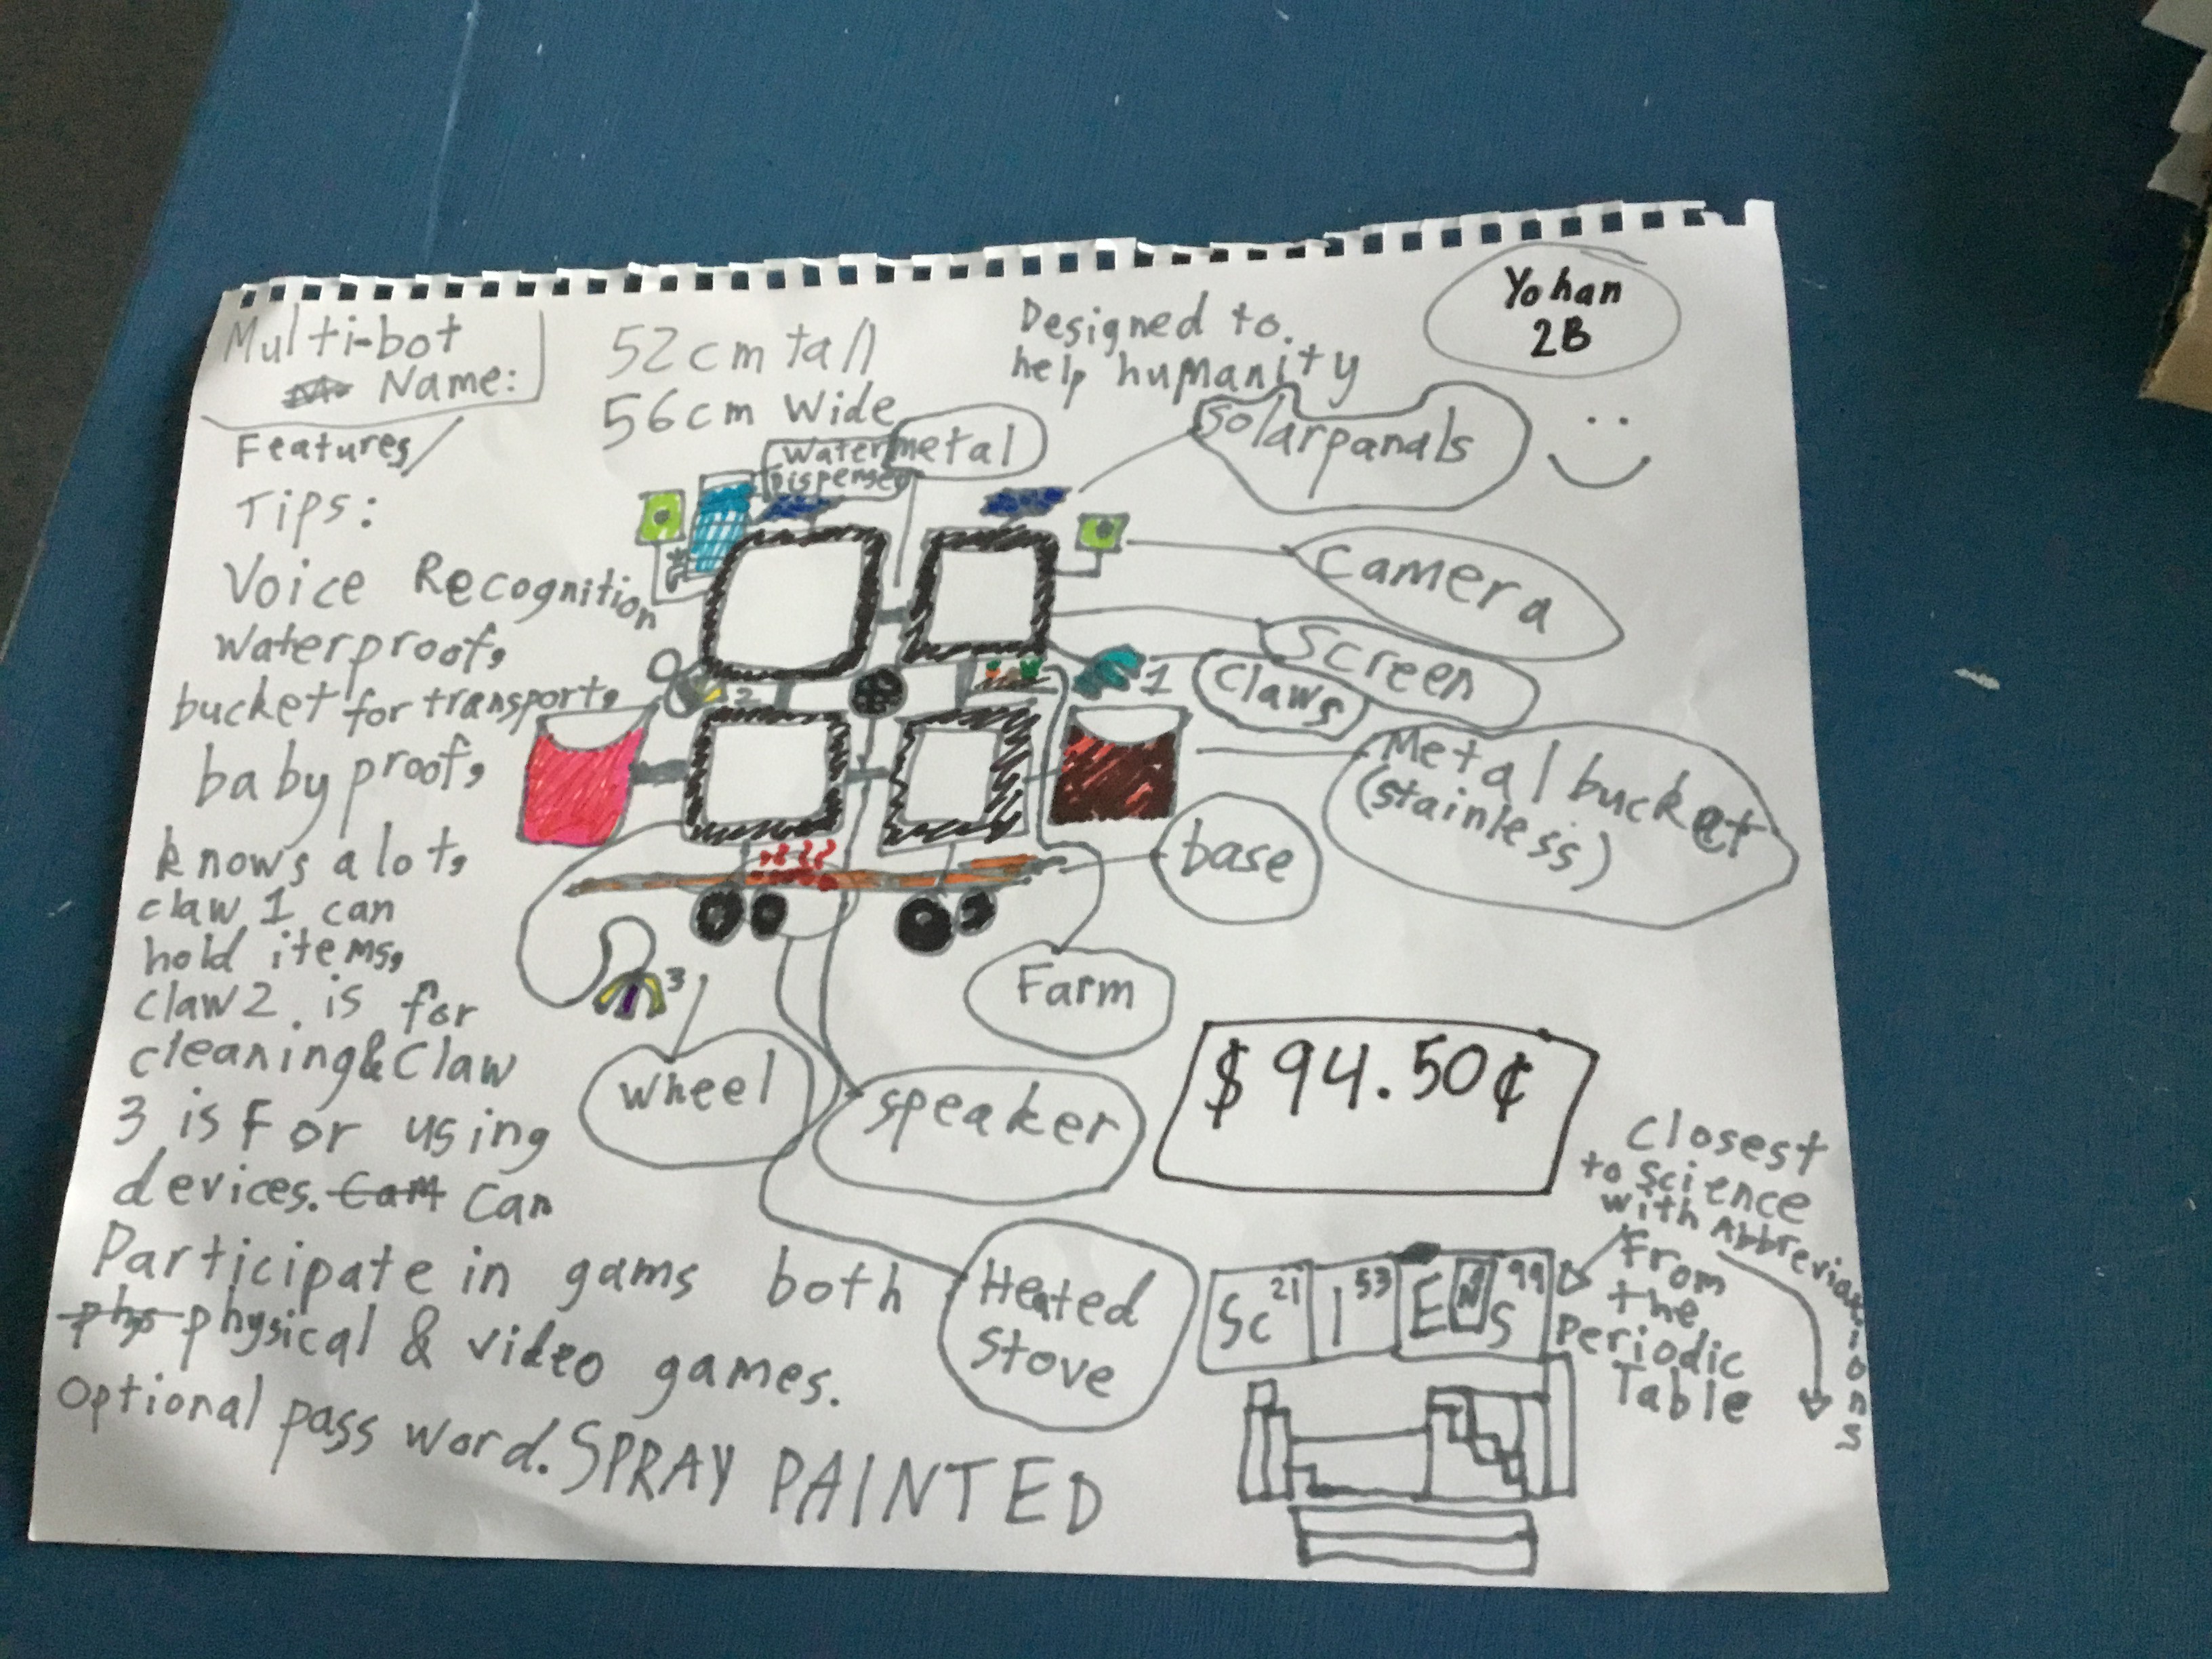 Multi-bot
Name:
52cm tall
56cm Wide
Designed to.
help humanity
Yohan
2B
Features/
Tips:
Voice Recognition
waterproof,
bucket for transport,
baby proof,
knows a lot,
claw 1 can
hold items,
claw 2. is for
cleaning & Claw
3 is For using
devices. Can
Participate in gams both
physical & video games.
Optional pass word. SPRAY PAINTED
Water
Dispenser
metal
Solarpanals
camera
Screen
Claws
1
2
3
Metal bucket
(stainless)
base
Farm
wheel
speaker
Heated
Stove
$94.50¢
Closest
to Science
with Abbreviations
From
the
Periodic
Table
Sc 21 I 53 E N S 99